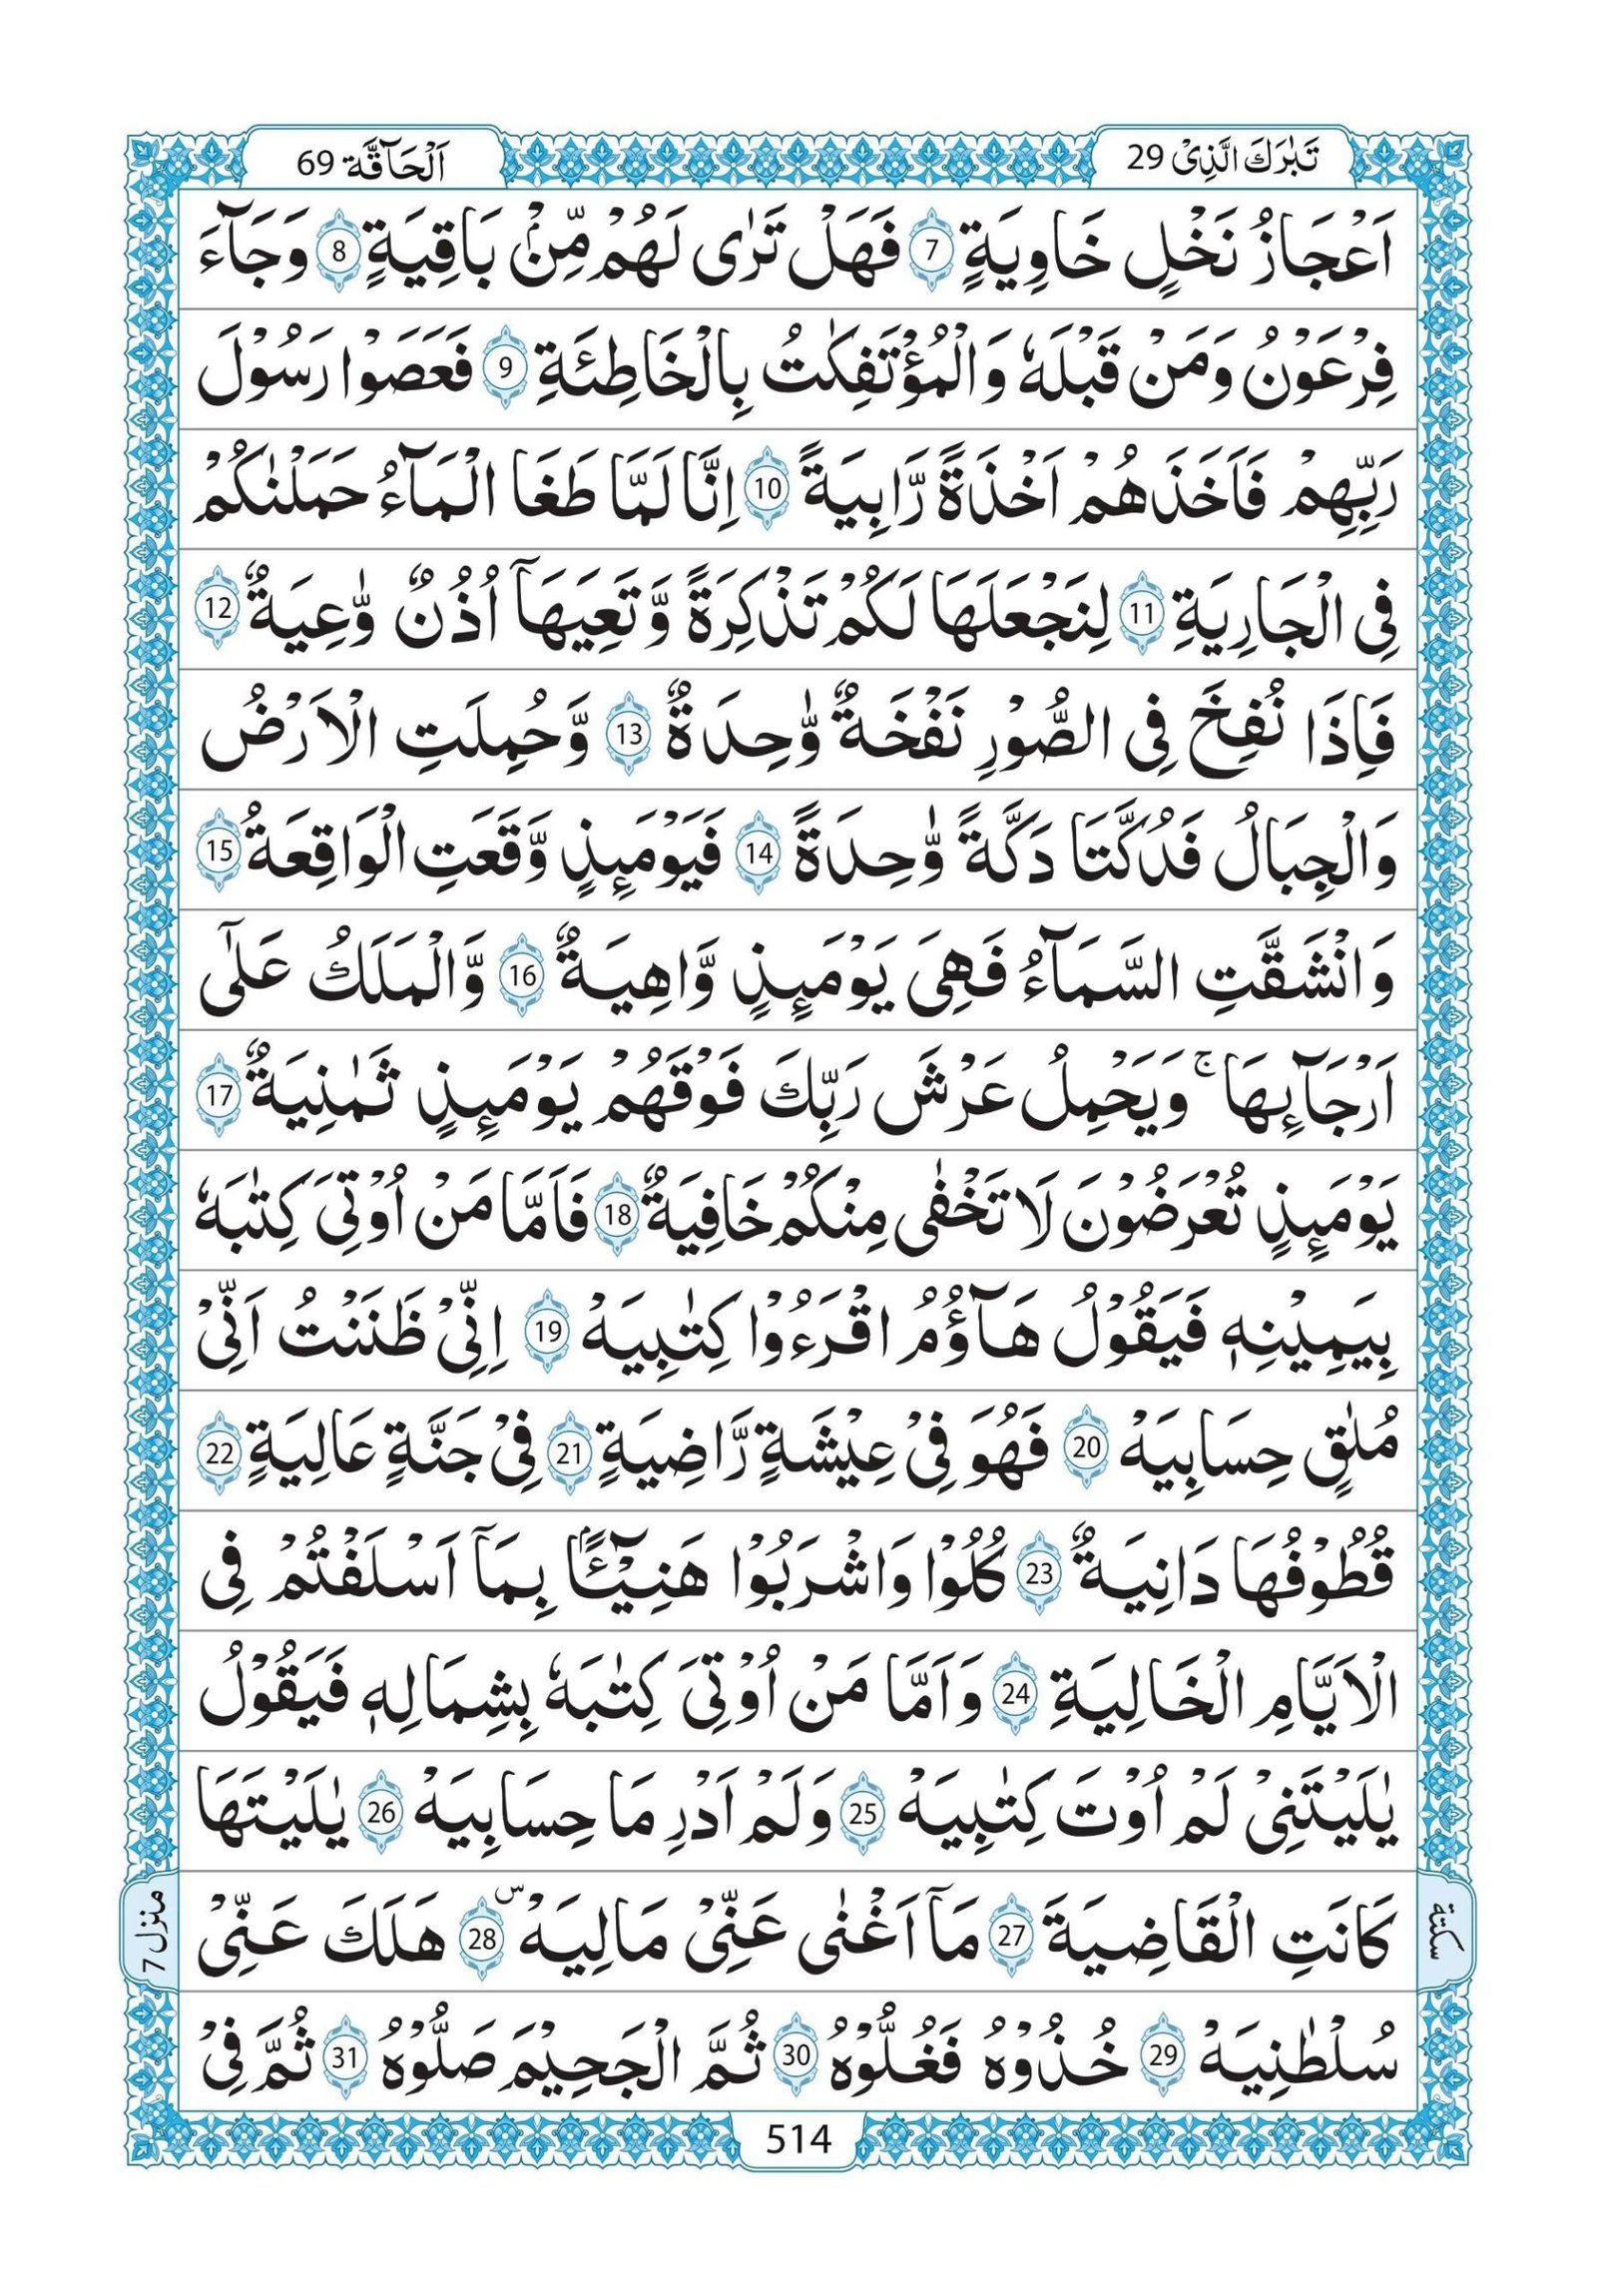 تَبٰرَكَ الَّذِیْ 29
اَلْحَآقَّة 69
اَعْجَازُ نَخْلٍ خَاوِیَةٍ 7 فَهَلْ تَرٰی لَهُمْ مِّنْۢ بَاقِیَةٍ 8 وَجَآءَ
فِرْعَوْنُ وَمَنْ قَبْلَهٗ وَالْمُؤْتَفِكٰتُ بِالْخَاطِئَةِ 9 فَعَصَوْا رَسُوْلَ
رَبِّهِمْ فَاَخَذَهُمْ اَخْذَةً رَّابِیَةً 10 اِنَّا لَمَّا طَغَا الْمَآءُ حَمَلْنٰكُمْ
فِی الْجَارِیَةِ 11 لِنَجْعَلَهَا لَكُمْ تَذْكِرَةً وَّتَعِیَهَاۤ اُذُنٌ وّٰعِیَةٌ 12
فَاِذَا نُفِخَ فِی الصُّوْرِ نَفْخَةٌ وّٰحِدَةٌ 13 وَّحُمِلَتِ الْاَرْضُ
وَالْجِبَالُ فَدُكَّتَا دَكَّةً وّٰحِدَةً 14 فَیَوْمَىِٕذٍ وَّقَعَتِ الْوَاقِعَةُ 15
وَانْشَقَّتِ السَّمَآءُ فَهِیَ یَوْمَىِٕذٍ وَّاهِیَةٌ 16 وَّالْمَلَكُ عَلٰۤی
اَرْجَآىِٕهَا ۚ وَیَحْمِلُ عَرْشَ رَبِّكَ فَوْقَهُمْ یَوْمَىِٕذٍ ثَمٰنِیَةٌ 17
یَوْمَىِٕذٍ تُعْرَضُوْنَ لَا تَخْفٰی مِنْكُمْ خَافِیَةٌ 18 فَاَمَّا مَنْ اُوْتِیَ كِتٰبَهٗ
بِیَمِیْنِهٖ فَیَقُوْلُ هَآؤُمُ اقْرَءُوْا كِتٰبِیَهْ 19 اِنِّیْ ظَنَنْتُ اَنِّیْ
مُلٰقٍ حِسَابِیَهْ 20 فَهُوَ فِیْ عِیْشَةٍ رَّاضِیَةٍ 21 فِیْ جَنَّةٍ عَالِیَةٍ 22
قُطُوْفُهَا دَانِیَةٌ 23 كُلُوْا وَاشْرَبُوْا هَنِیْٓـًٔۢا بِمَاۤ اَسْلَفْتُمْ فِی
الْاَیَّامِ الْخَالِیَةِ 24 وَاَمَّا مَنْ اُوْتِیَ كِتٰبَهٗ بِشِمَالِهٖ فَیَقُوْلُ
یٰلَیْتَنِیْ لَمْ اُوْتَ كِتٰبِیَهْ 25 وَلَمْ اَدْرِ مَا حِسَابِیَهْ 26 یٰلَیْتَهَا
كَانَتِ الْقَاضِیَةَ 27 مَاۤ اَغْنٰی عَنِّیْ مَالِیَهْ ۜ 28 هَلَكَ عَنِّیْ
سُلْطٰنِیَهْ 29 خُذُوْهُ فَغُلُّوْهُ 30 ثُمَّ الْجَحِیْمَ صَلُّوْهُ 31 ثُمَّ فِیْ
سكتة
منزل 7
514